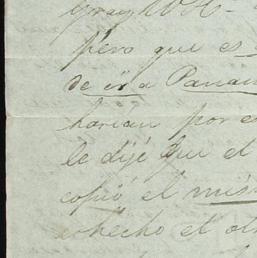 pero que es
de ir a Panam
harian por e
le dijé que el
copió el mis
echo el ot